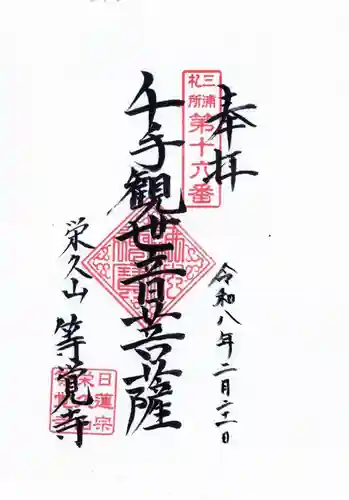 奉拝
三浦
札所
第十六番
千手観世音菩薩
令和八年二月二十一日
栄久山
等覚寺
日蓮宗